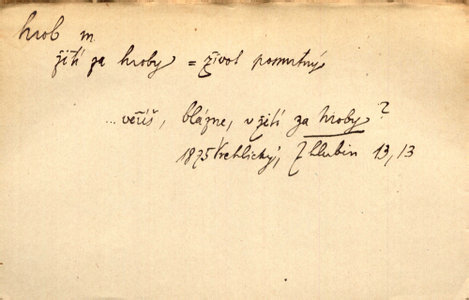 hrob m.
žití za hroby = život posmrtný
... věříš, blázne, v žití za hroby?
1875 Vrchlický, Z hlubin 13, 13